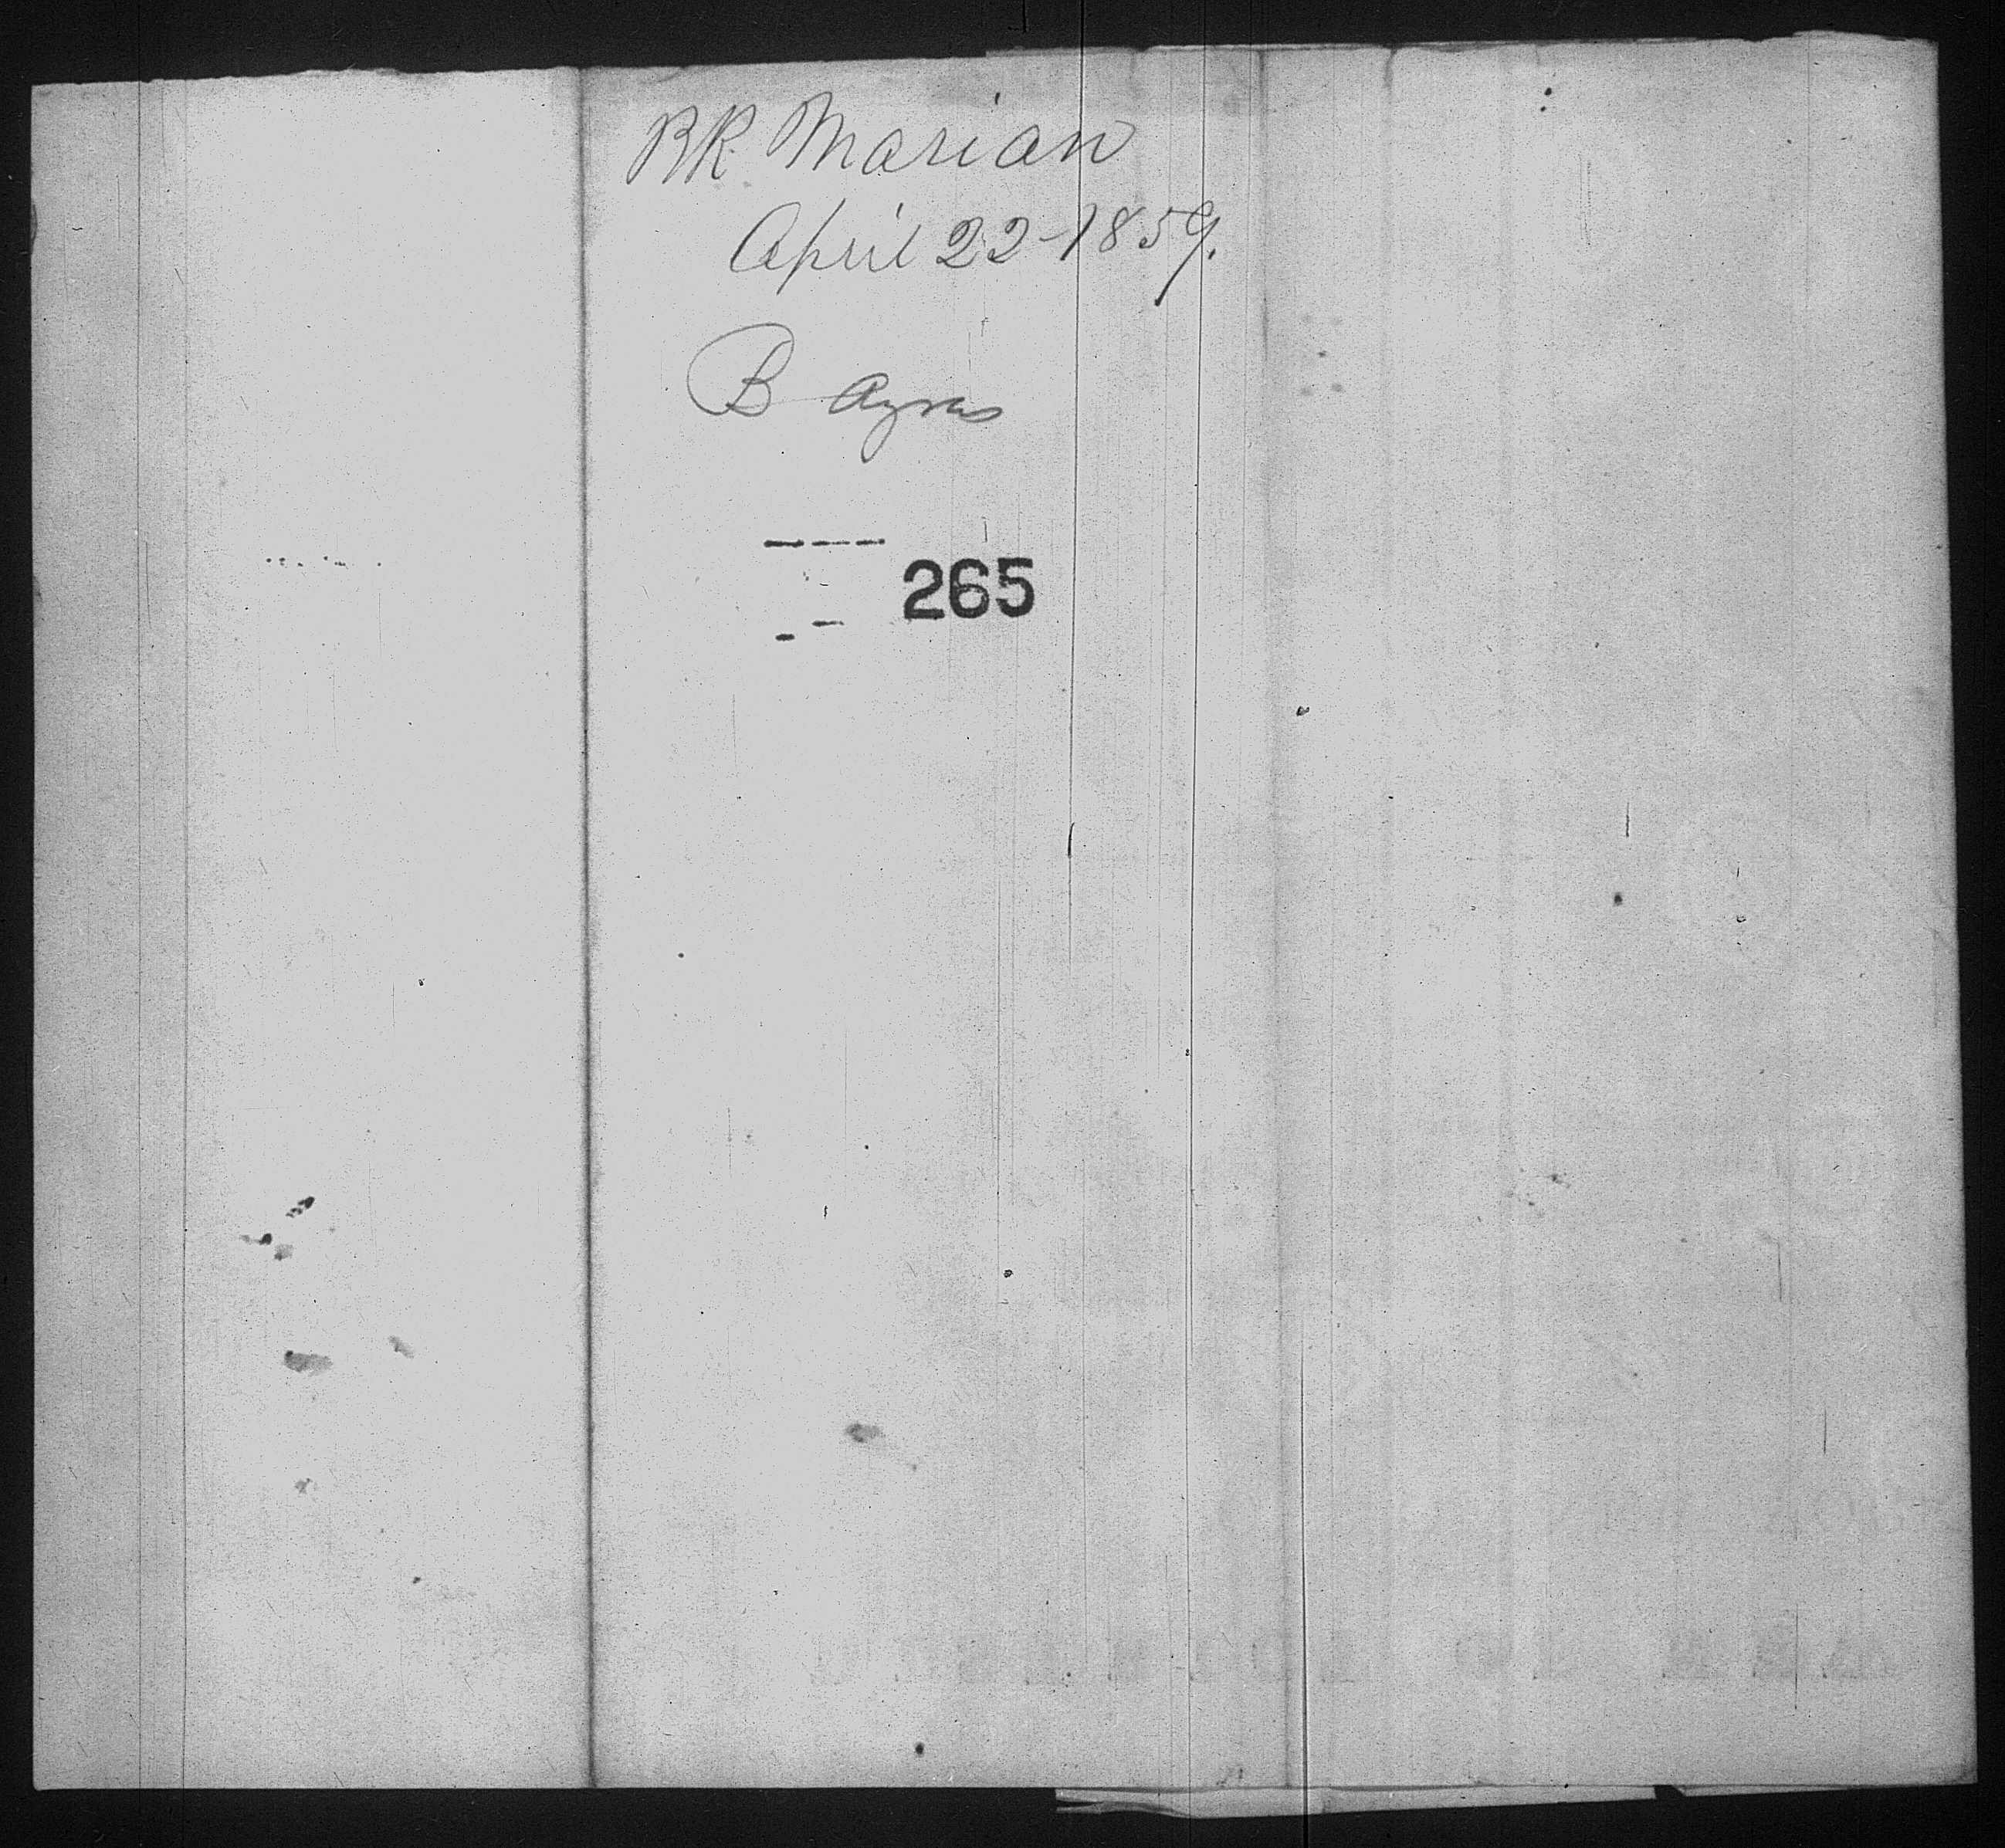 BK Marian
April 22-1859.
B Ayres
265